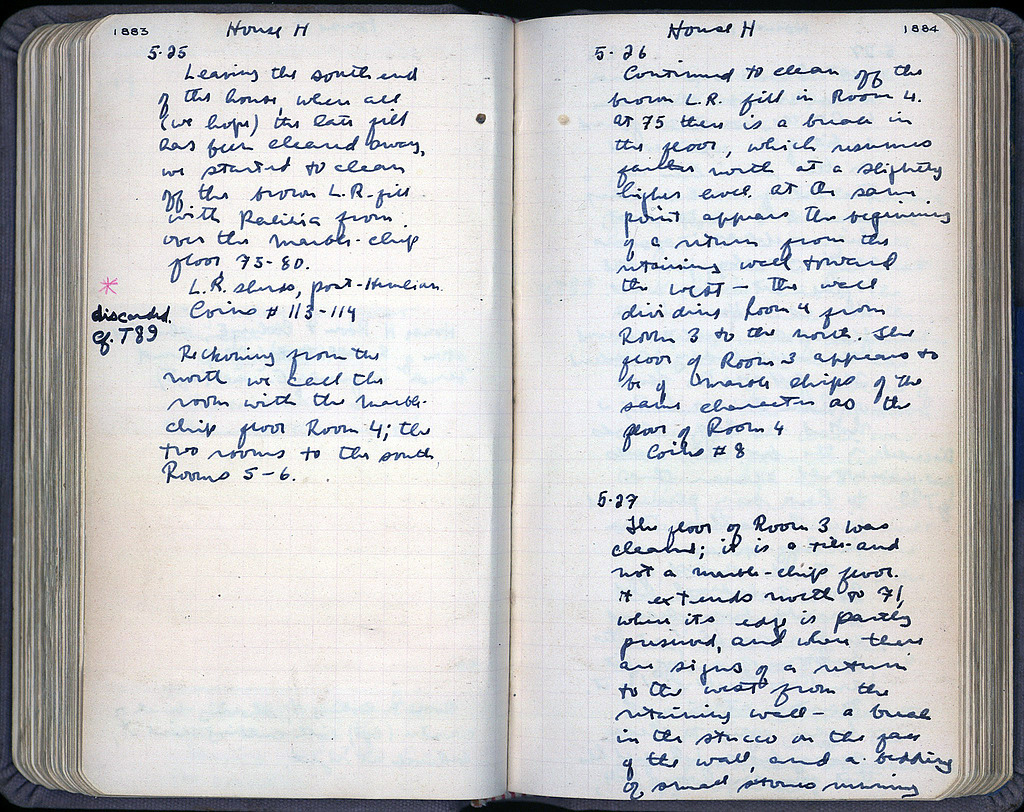 1883
House H
5·25
Leaving the south end
of the house, where all
(we hope) the late fill
has been cleared away,
we started to clean
off the brown L.R. fill
with from
over the marble-chip
floor 75-80.
L.R. sherds, post-Herulian
*
discarded.
cf. T89
Coins # 113-114
Reckoning from the
north we call the
room with the marble-
chip floor Room 4; the
two rooms to the south,
Rooms 5-6.
1884
House H
5·26
Continued to clean off the
brown L.R. fill in Room 4.
At 75 there is a break in
the floor, which resumes
farther north at a slightly
higher level. At the same
point appears the beginning
of a return from the
retaining wall toward
the west — the wall
dividing Room 4 from
Room 3 to the north. The
floor of Room 3 appears to
be of marble chips of the
same character as the
floor of Room 4
Coins # 8
5·27
The floor of Room 3 was
cleaned; it is a tile and
not a marble-chip floor.
It extends north to 71,
where its edge is partly
preserved, and where there
are signs of a return
to the west from the
retaining wall — a break
in the stucco on the face
of the wall, and a bedding
of small stones running